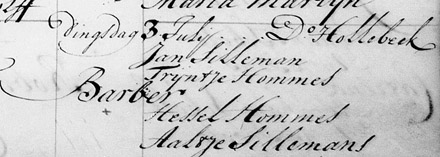 24 Maria Martyn
Dingsdag 3 July Do Hollebeek
Jan Silleman
Tryntje Hommes
Barber
Hessel Hommes
Aaltje Sillemans